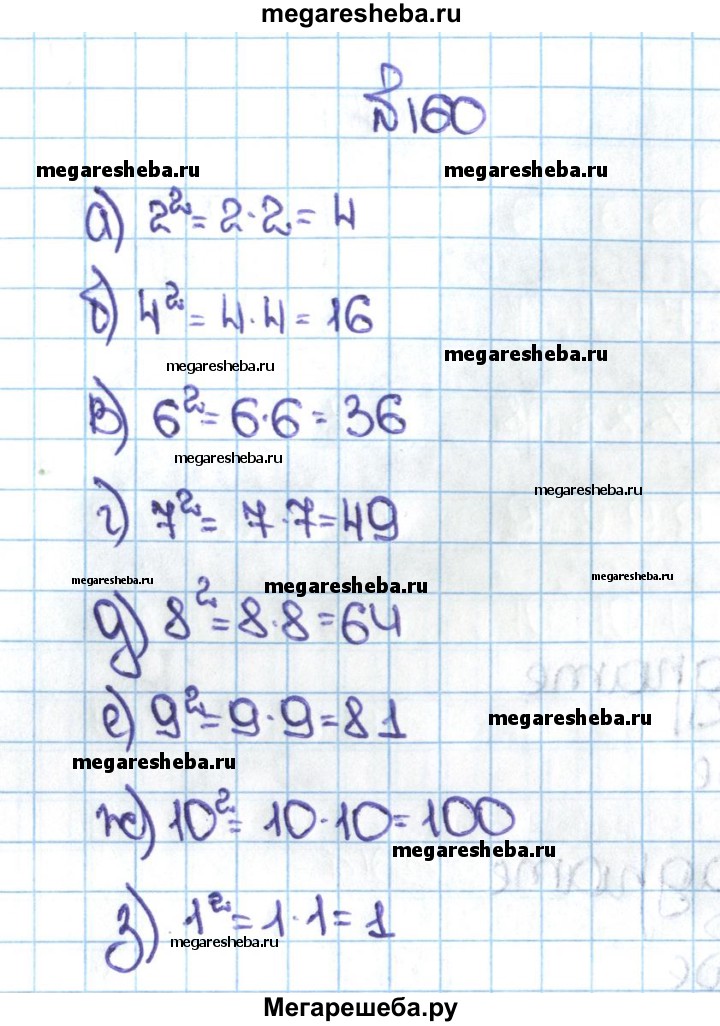 megaresheba.ru
№160
megaresheba.ru megaresheba.ru
а) 2² = 2·2 = 4
б) 4² = 4·4 = 16
megaresheba.ru
megaresheba.ru
в) 6² = 6·6 = 36
megaresheba.ru
megaresheba.ru
г) 7² = 7·7 = 49
megaresheba.ru megaresheba.ru megaresheba.ru
д) 8² = 8·8 = 64
е) 9² = 9·9 = 81
megaresheba.ru
megaresheba.ru
ж) 10² = 10·10 = 100
megaresheba.ru
з) 1² = 1·1 = 1
megaresheba.ru
Мегарешеба.ру